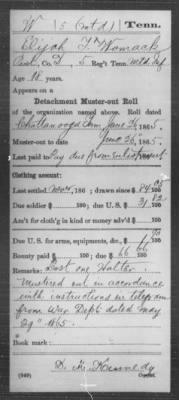 W | 5 (mt'd) | Tenn.
Elijah T. Womack
Co. D, 5 Reg't Tenn. Mtd. Inf
Age 18 years.
Appears on a
Detachment Muster-out Roll
of the organization named above. Roll dated
Chattanooga Tenn June 26, 1865.
Muster-out to date June 26, 1865.
Last paid to Pay due from enrollment
Clothing account:
Last settled never, 186 ; drawn since $ 74 05/100
Due soldier $ /100; due U. S. $ 31 82/100
Am't for cloth'g in kind or money adv'd $ /100
Due U. S. for arms, equipments, &c., $ /100
Bounty paid $ /100; due $ 66 66/100
Remarks: Lost one Halter.
Mustered out in accordance
with instructions in telegram
from War Dept dated May
29" 1865.
Book mark:
D. H. Kennedy
(949) Copyist.